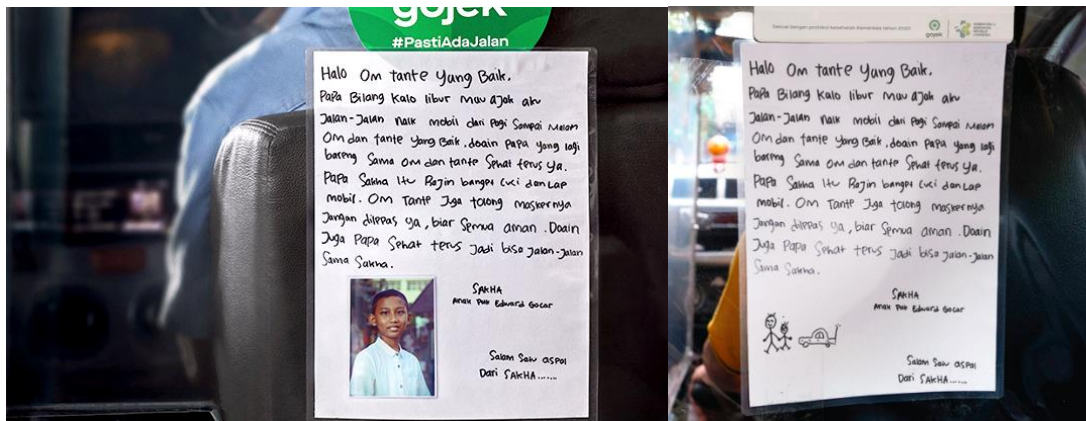 gojek
#PastiAdaJalan
Halo Om tante Yang Baik.
Papa Bilang Kalo libur mau ajak aku
Jalan-Jalan Naik mobil dari Pagi Sampai Malam
Om dan tante Yang Baik. doain Papa yang lagi
bareng Sama Om dan tante Sehat terus Ya.
Papa Sakha Itu Rajin banget Cuci dan Lap
mobil. Om Tante Jga tolong maskernya
Jangan dilepas ya, biar Semua aman. Doain
Juga Papa Sehat terus Jadi bisa Jalan-Jalan
Sama Sakha.
SAKHA
Anak Pak Edward Gocar
Salam Satu ASPAl
Dari SAKHA......
Sesuai dengan protokol kesehatan Kemenkes tahun 2020
gojek
Halo Om tante Yang Baik.
Papa Bilang Kalo libur mau ajak aku
Jalan-Jalan Naik mobil dari Pagi Sampai Malam
Om dan tante Yang Baik. doain Papa yang lagi
bareng Sama Om dan tante Sehat terus Ya.
Papa Sakha Itu Rajin banget Cuci dan Lap
mobil. Om Tante Jga tolong maskernya
Jangan dilepas ya, biar Semua aman. Doain
Juga Papa Sehat terus Jadi bisa Jalan-Jalan
Sama Sakha.
SAKHA
Anak Pak Edward Gocar
Salam Satu ASPAl
Dari SAKHA......